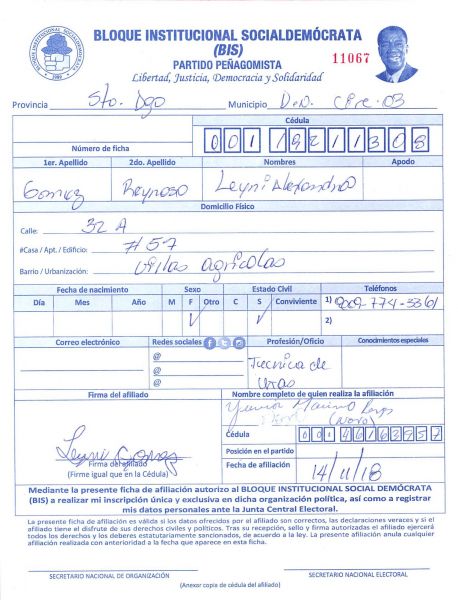 BLOQUE INSTITUCIONAL SOCIALDEMÓCRATA
(BIS)
PARTIDO PEÑAGOMISTA
11067
Libertad, Justicia, Democracia y Solidaridad
Provincia Sto. Dgo Municipio D.N. Circ. 03
Cédula
Número de ficha
1er. Apellido 2do. Apellido Nombres Apodo
Gomez Reynoso Leyni Alexandra
Domicilio Físico
Calle: 32 A
#Casa / Apt. / Edificio: #57
Barrio / Urbanización: Villas agricolas
Fecha de nacimiento Sexo Estado Civil Teléfonos
Día Mes Año M F Otro C S Conviviente 1) 809-774-3361
2)
Correo electrónico Redes sociales Profesión/Oficio Conocimientos especiales
@
@
@
Tecnica de
uñas
Firma del afiliado Nombre completo de quien realiza la afiliación
Cédula
Posición en el partido
Firma del afiliado
(Firme igual que en la Cédula)
Fecha de afiliación 14/11/18
Mediante la presente ficha de afiliación autorizo al BLOQUE INSTITUCIONAL SOCIAL DEMÓCRATA
(BIS) a realizar mi inscripción única y exclusiva en dicha organización política, así como a registrar
mis datos personales ante la Junta Central Electoral.
La presente ficha de afiliación es válida si los datos ofrecidos por el afiliado son correctos, las declaraciones veraces y si el
afiliado tiene el disfrute de sus derechos civiles y políticos. Tras su recepción, sello y firma autorizada el afiliado ejercerá
todos los derechos y los deberes estatutariamente sancionados, de acuerdo a la ley. La presente afiliación anula cualquier
afiliación realizada con anterioridad a la fecha que aparece en esta ficha.
SECRETARIO NACIONAL DE ORGANIZACIÓN SECRETARIO NACIONAL ELECTORAL
(Anexar copia de cédula del afiliado)